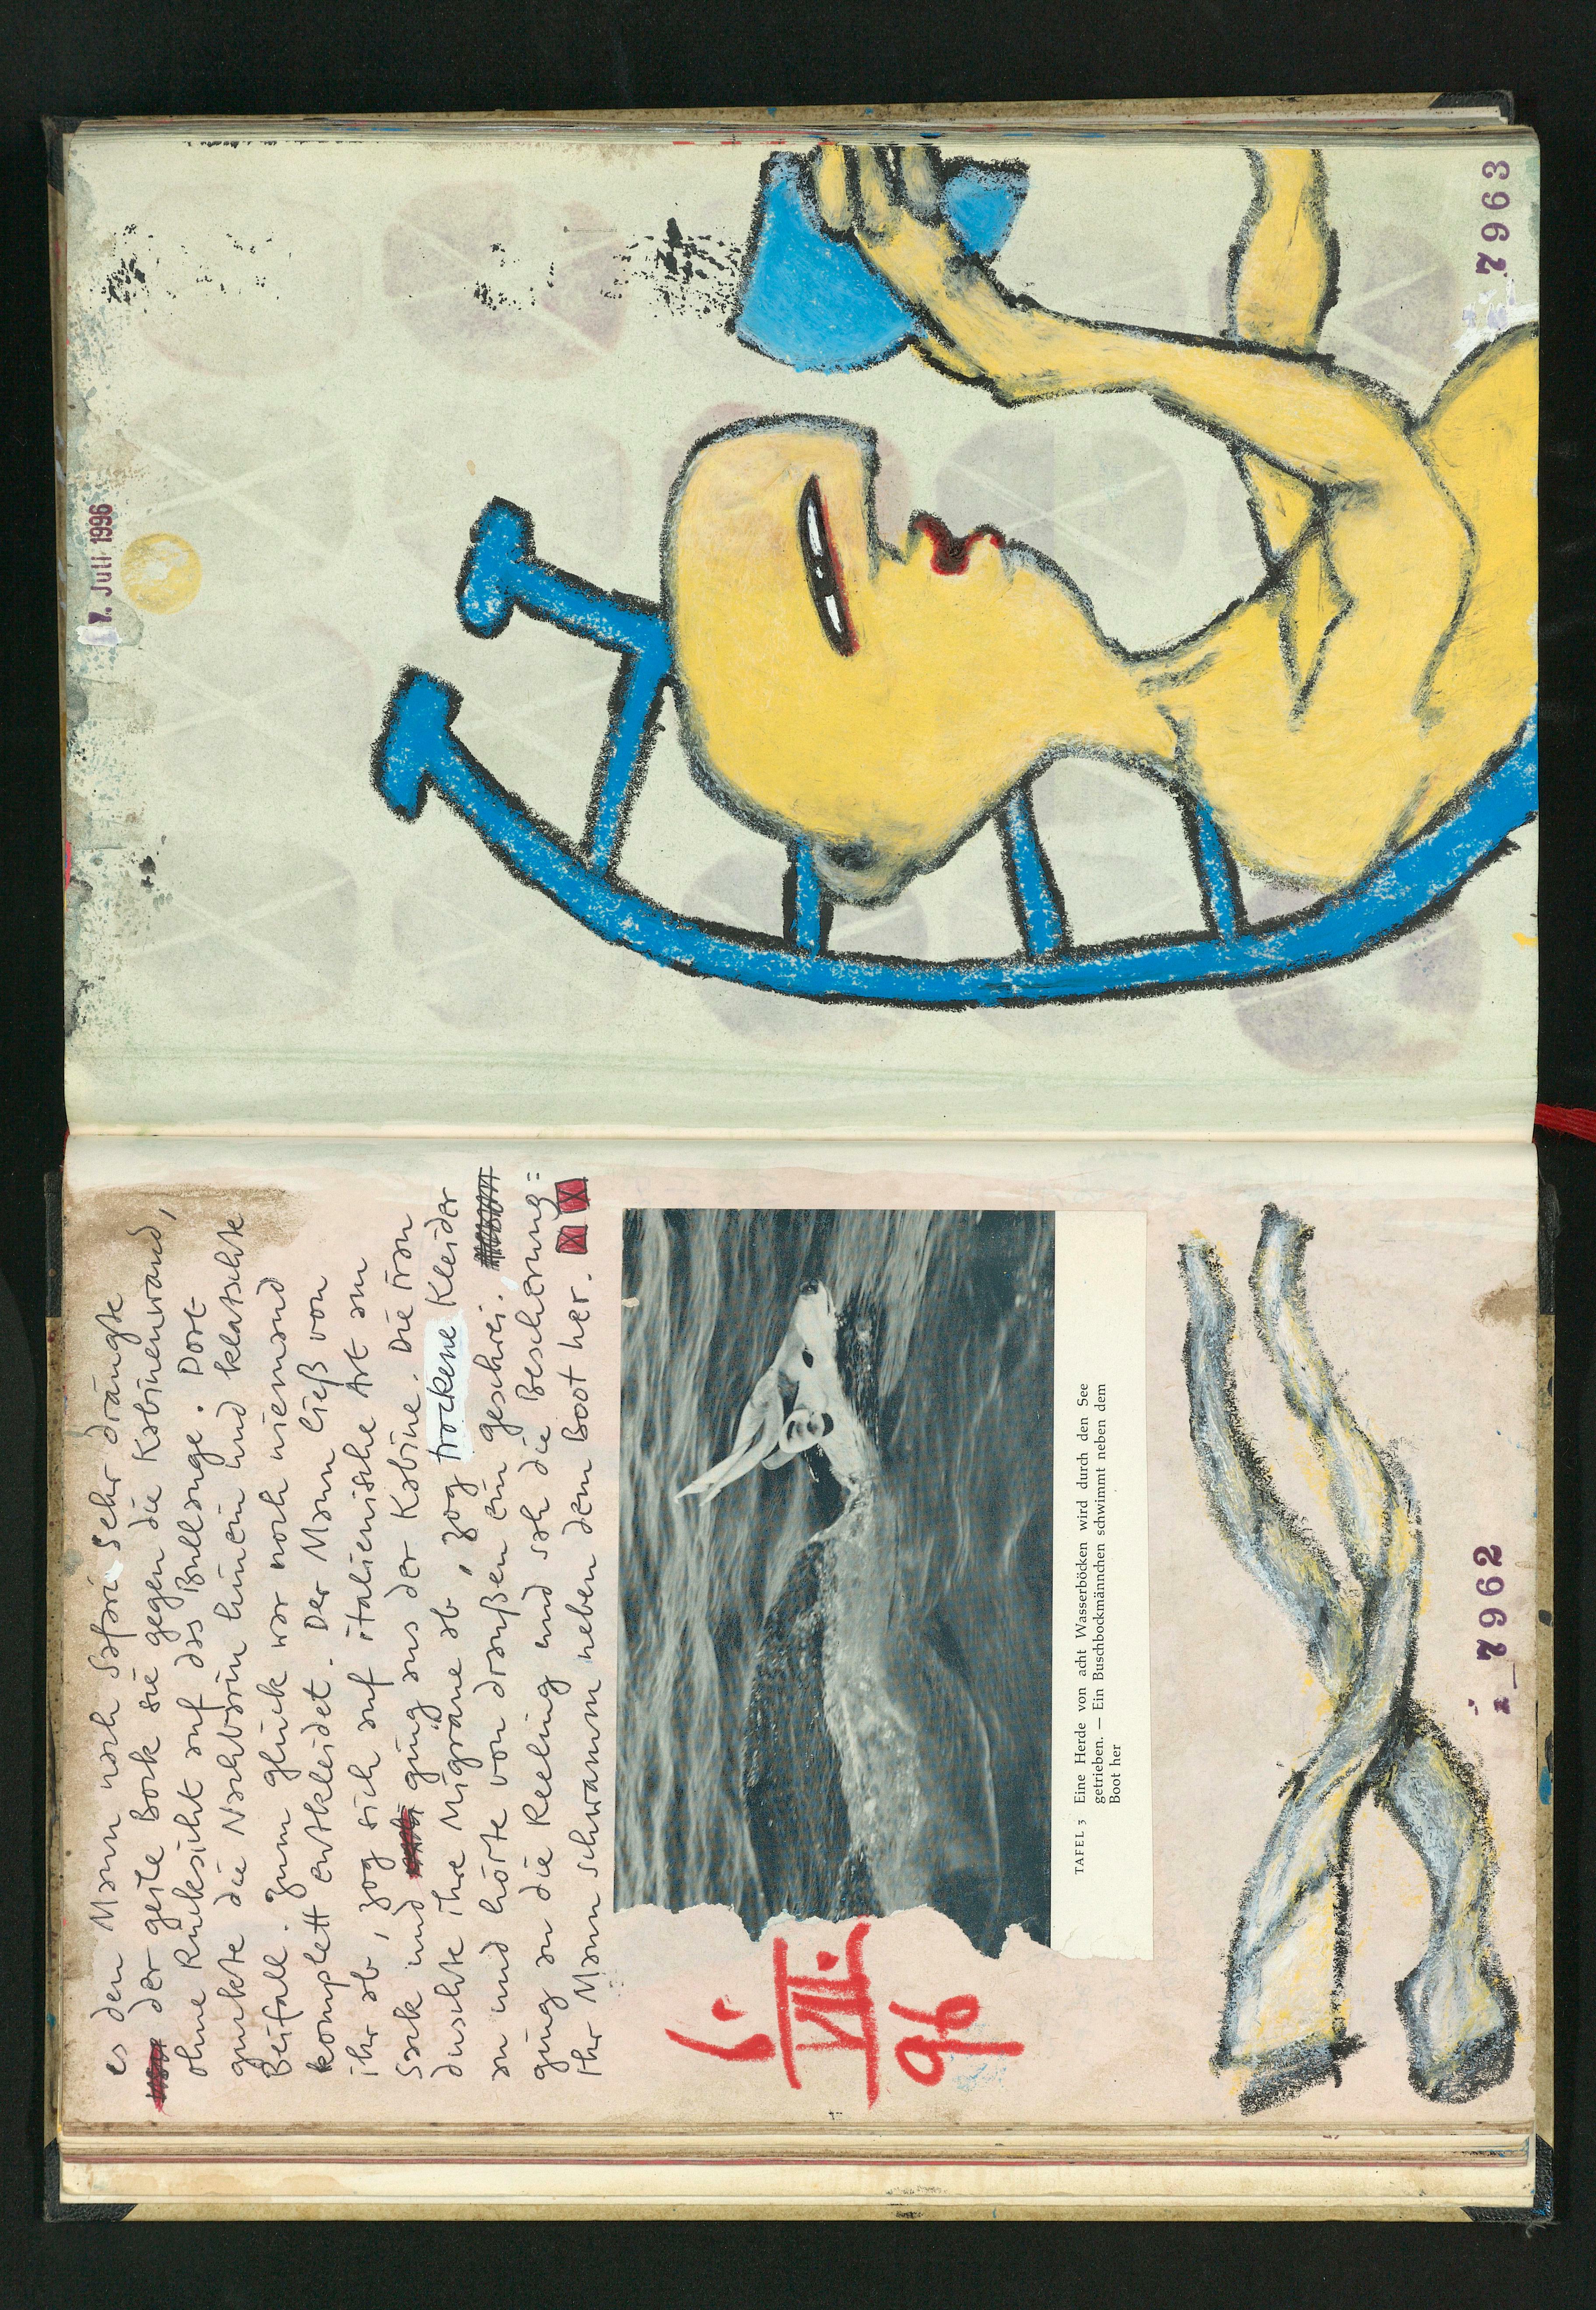 es den Mann nach Safari sehr drängte
der geile Bock sie gegen die Kabinenwand,
ohne Rücksicht auf das Bullauge. Dort
guckte die Nachbarin hinein und klatschte
Beifall. Zum Glück war noch niemand
komplett entkleidet. Der Mann ließ von
ihr ab, zog sich auf italienische Art am
Sack und ging aus der Kabine. Die Frau
duschte ihre Migräne ab, zog trockene Kleider
an und hörte von draußen ein Geschrei.
ging an die Reeling und sah die Bescherung=
Ihr Mann schwamm neben dem Boot her.
TAFEL 3 Eine Herde von acht Wasserböcken wird durch den See
getrieben. — Ein Buschbockmännchen schwimmt neben dem
Boot her
6.
VII.
96
7962
7. Juli 1996
7963